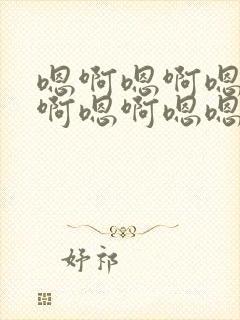 嗯啊嗯啊嗯
啊嗯啊嗯嗯
妤祁